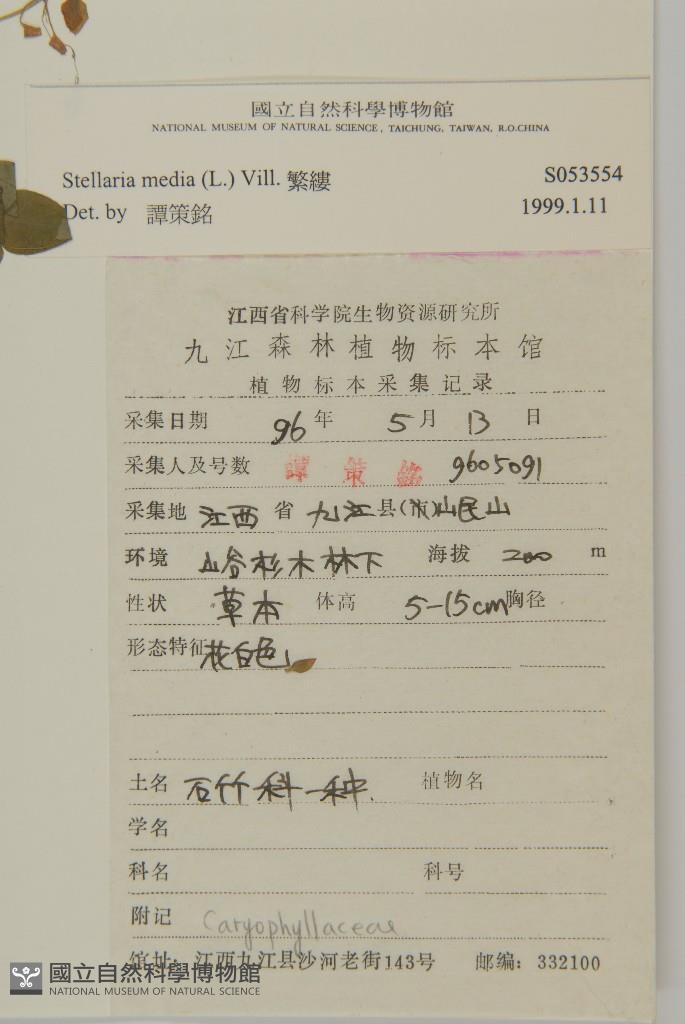 國立自然科學博物館
NATIONAL MUSEUM OF NATURAL SCIENCE, TAICHUNG, TAIWAN, R.O.CHINA
Stellaria media (L.) Vill. 繁縷 S053554
Det. by 譚策銘 1999.1.11
江西省科学院生物资源研究所
九江森林植物标本馆
植物标本采集记录
采集日期 96年 5月 13日
采集人及号数 譚策銘 9605091
采集地 江西省 九江县(市) 岷山
环境 山谷杉木林下 海拔 200 m
性状 草本 体高 5-15cm 胸径
形态特征 花白色
土名 石竹科一种. 植物名
学名
科名 科号
附记 Caryophyllaceae
馆址：江西九江县沙河老街143号 邮编：332100
國立自然科學博物館
NATIONAL MUSEUM OF NATURAL SCIENCE